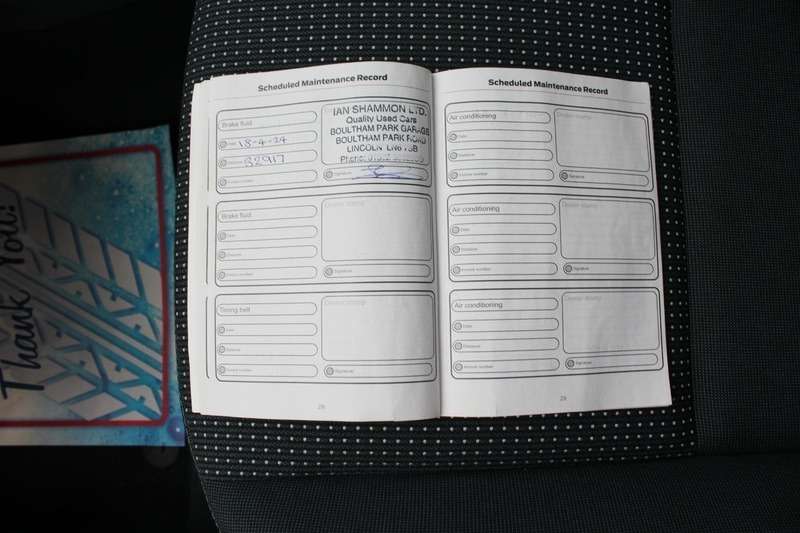 Scheduled Maintenance Record
Brake fluid
Date 18-4-24
Distance 32917
Invoice number
IAN SHAMMON LTD.
Quality Used Cars
BOULTHAM PARK GARAGE
BOULTHAM PARK ROAD
LINCOLN LN6 7SB
Phone:
Signature
Brake fluid
Date
Distance
Invoice number
Dealer stamp
Signature
Timing belt
Date
Distance
Invoice number
Dealer stamp
Signature
28
Scheduled Maintenance Record
Air conditioning
Date
Distance
Invoice number
Dealer stamp
Signature
Air conditioning
Date
Distance
Invoice number
Dealer stamp
Signature
Air conditioning
Date
Distance
Invoice number
Dealer stamp
Signature
29
Thank You!